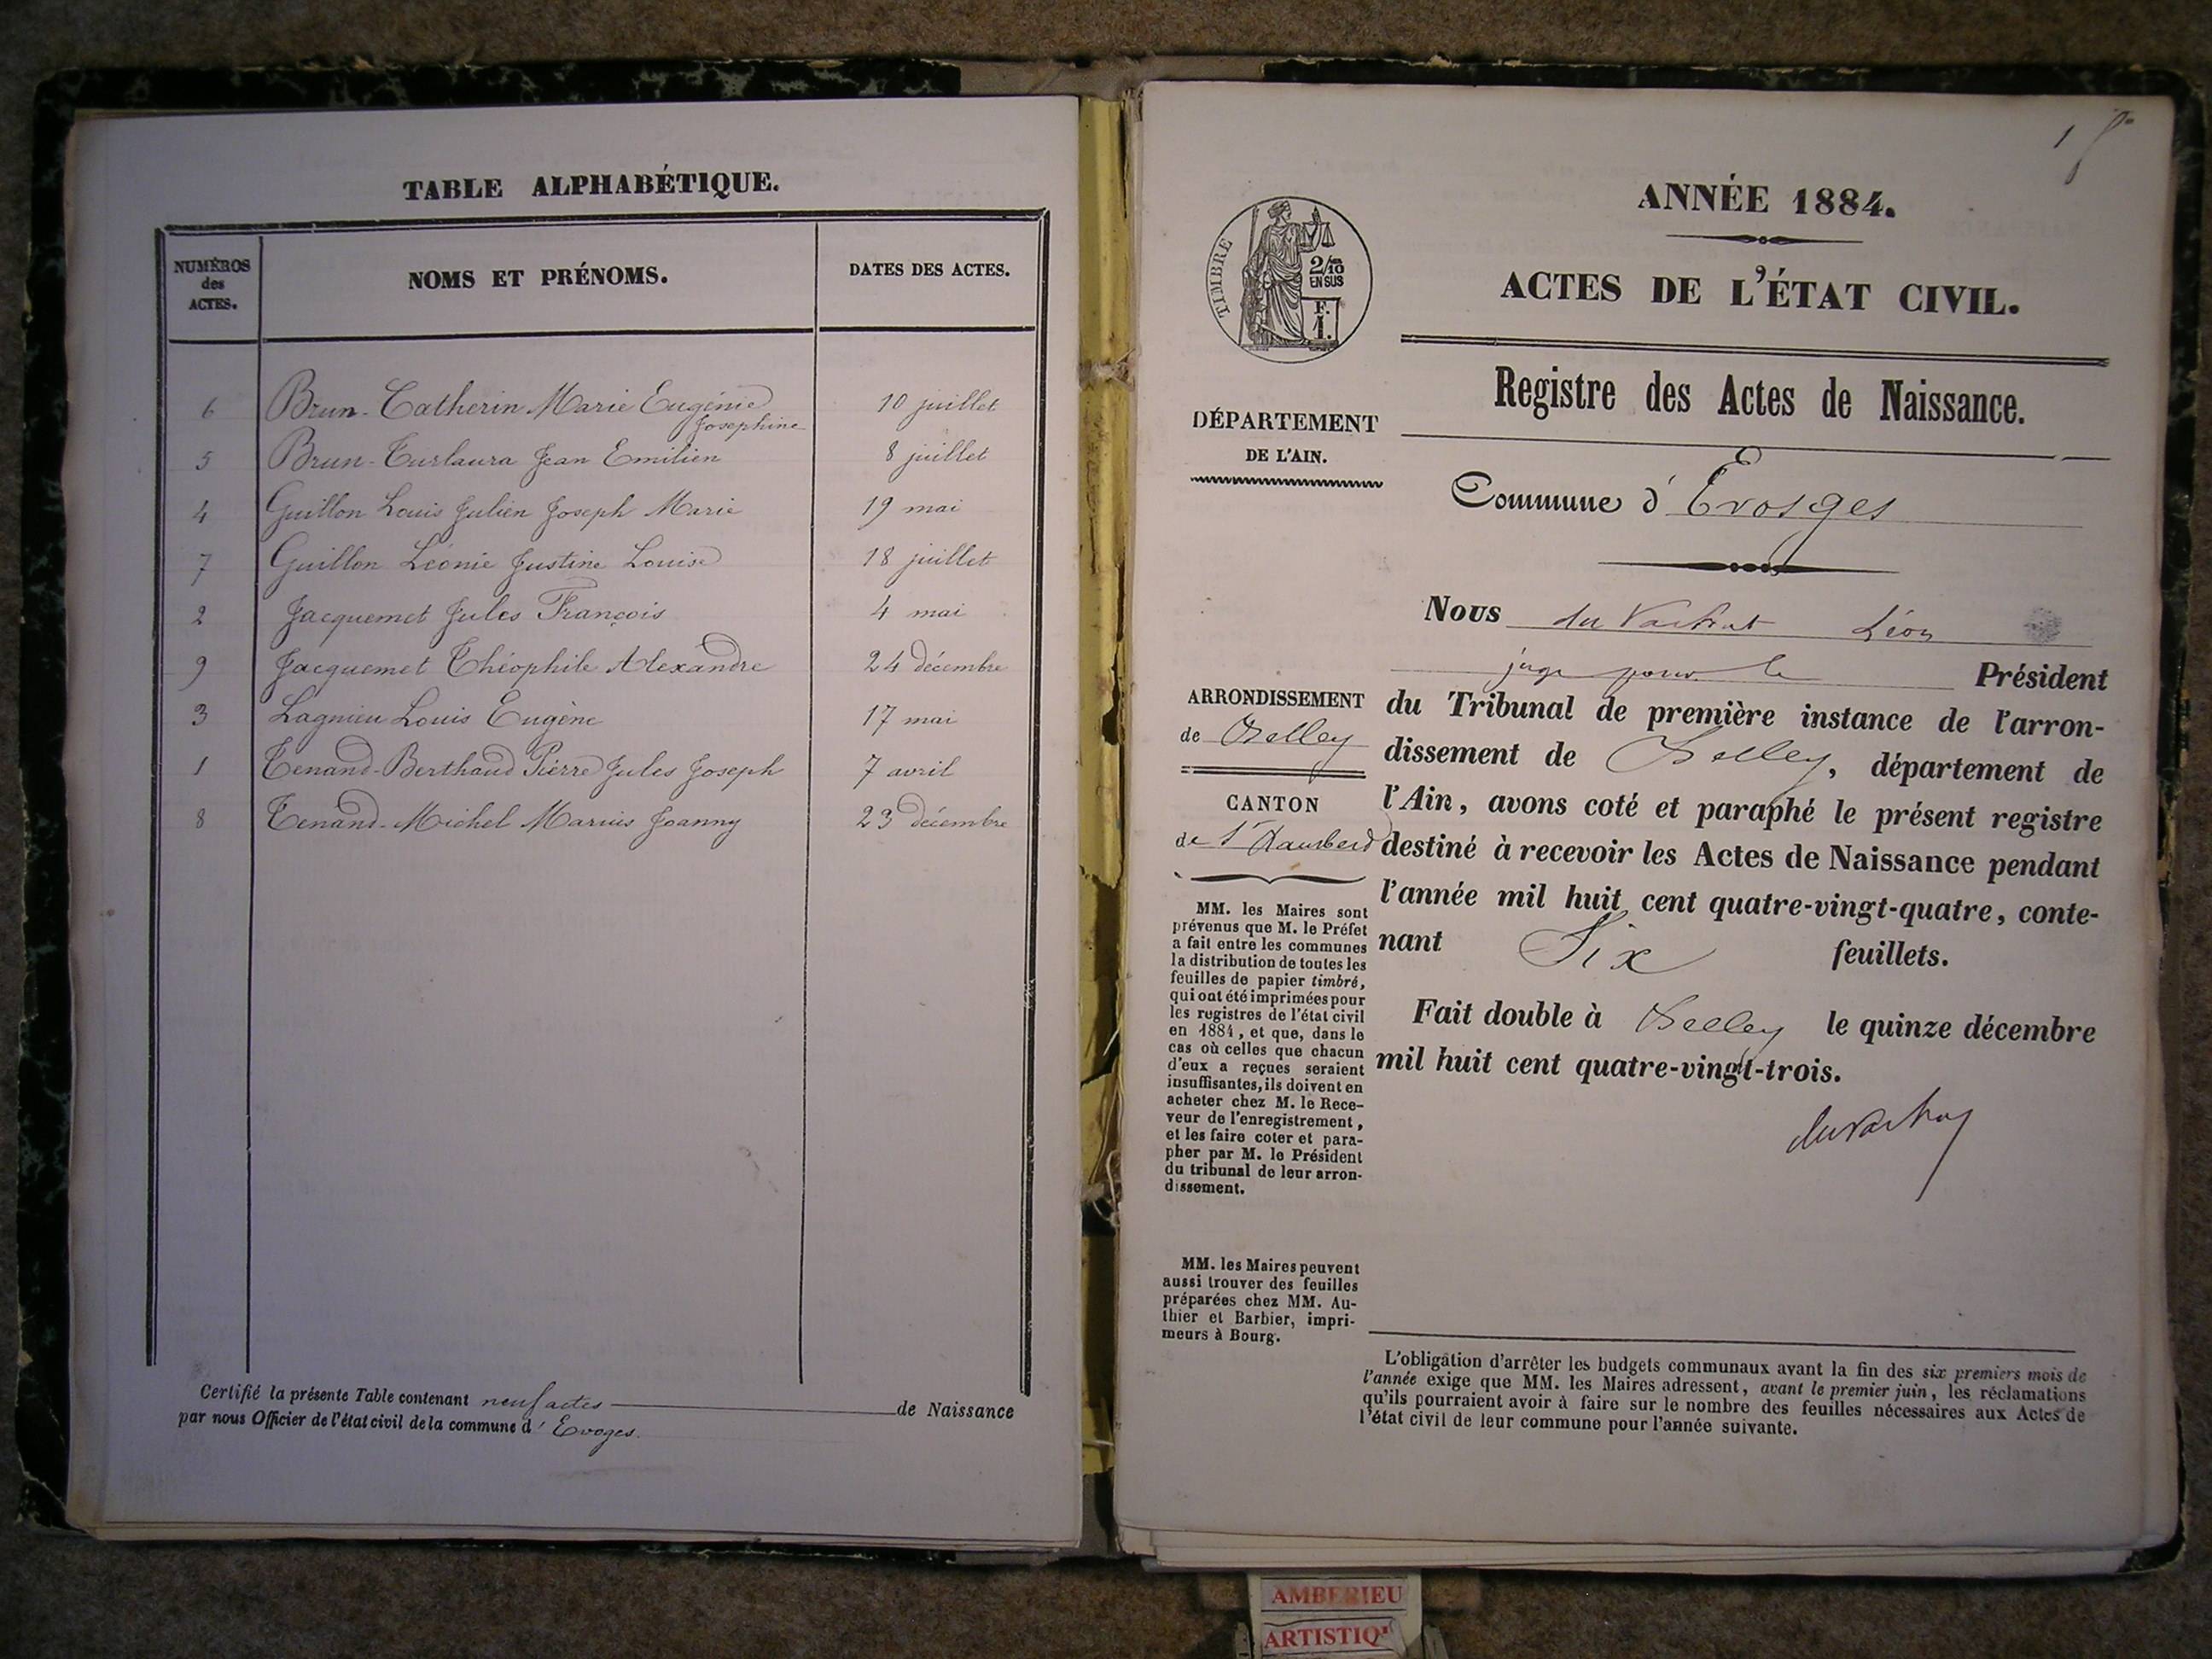 TABLE ALPHABÉTIQUE.
NUMÉROS des ACTES.
NOMS ET PRÉNOMS.
DATES DES ACTES.
6 Brun-Catherin Marie Eugénie Josephine 10 juillet
5 Brun-Turlaura Jean Emilien 8 juillet
4 Guillon Louis Julien Joseph Marie 19 mai
7 Guillon Léonie Justine Louise 18 juillet
2 Jacquemet Jules François 4 mai
9 Jacquemet Théophile Alexandre 24 décembre
3 Lagnieu Louis Eugène 17 mai
1 Tenand-Berthaud Pierre Jules Joseph 7 avril
8 Tenand-Michel Marius Joanny 23 décembre
Certifié la présente Table contenant neuf actes de Naissance
par nous Officier de l'état civil de la commune d' Evoges.
1
ANNÉE 1884.
TIMBRE
2/10 EN SUS
F. 1.
ACTES DE L'ÉTAT CIVIL.
Registre des Actes de Naissance.
DÉPARTEMENT
DE L'AIN.
Commune d' Evosges
ARRONDISSEMENT
de Belley
CANTON
de St Rambert
MM. les Maires sont
prévenus que M. le Préfet
a fait entre les communes
la distribution de toutes les
feuilles de papier timbré,
qui ont été imprimées pour
les registres de l'état civil
en 1884, et que, dans le
cas où celles que chacun
d'eux a reçues seraient
insuffisantes, ils doivent en
acheter chez M. le Rece-
veur de l'enregistrement,
et les faire coter et para-
pher par M. le Président
du tribunal de leur arron-
dissement.
MM. les Maires peuvent
aussi trouver des feuilles
préparées chez MM. Au-
thier et Barbier, impri-
meurs à Bourg.
Nous du Vachat Léon
juge pour le Président
du Tribunal de première instance de l'arron-
dissement de Belley, département de
l'Ain, avons coté et paraphé le présent registre
destiné à recevoir les Actes de Naissance pendant
l'année mil huit cent quatre-vingt-quatre, conte-
nant Six feuillets.
Fait double à Belley le quinze décembre
mil huit cent quatre-vingt-trois.
du Vachat
L'obligation d'arrêter les budgets communaux avant la fin des six premiers mois de
l'année exige que MM. les Maires adressent, avant le premier juin, les réclamations
qu'ils pourraient avoir à faire sur le nombre des feuilles nécessaires aux Actes de
l'état civil de leur commune pour l'année suivante.
AMBERIEU
ARTISTIQ